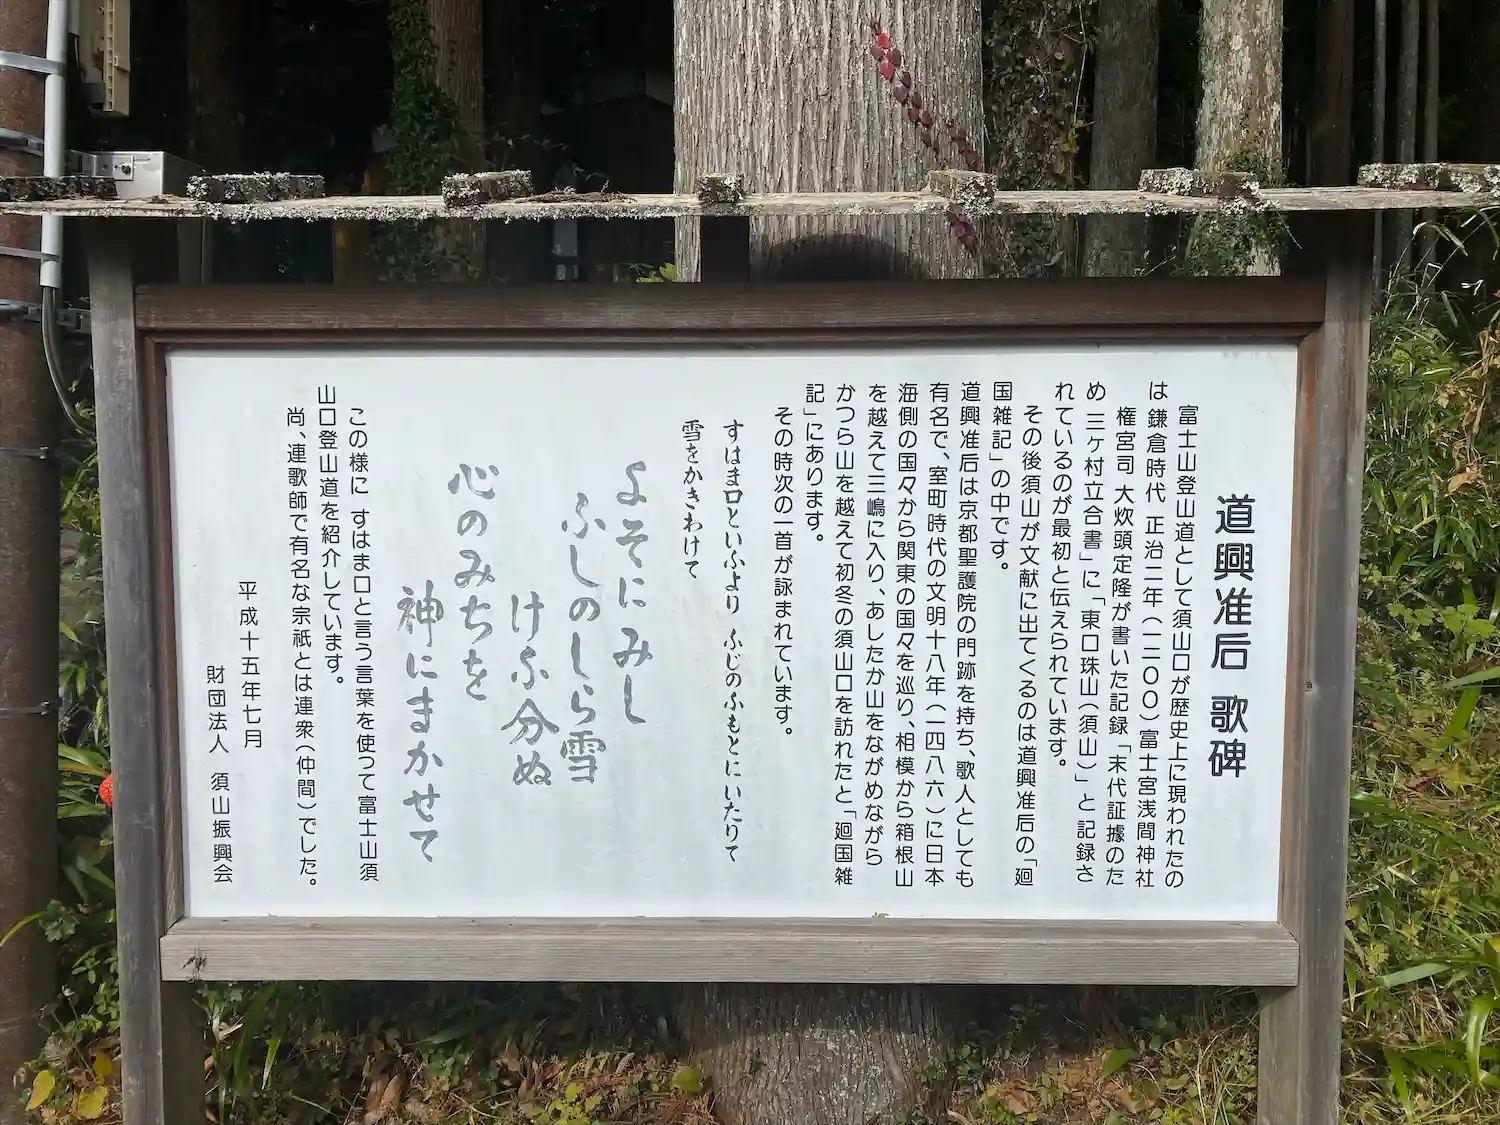 道興准后 歌碑
富士山登山道として須山口が歴史上に現われたの
は 鎌倉時代 正治二年（一二〇〇）富士宮浅間神社
権宮司 大炊頭定隆が書いた記録「末代証據のた
め 三ケ村立合書」に「東口珠山（須山）」と記録さ
れているのが最初と伝えられています。
その後須山が文献に出てくるのは道興准后の「廻
国雑記」の中です。
道興准后は京都聖護院の門跡を持ち、歌人としても
有名で、室町時代の文明十八年（一四八六）に日本
海側の国々から関東の国々を巡り、相模から箱根山
を越えて三嶋に入り、あしたか山をながめながら
かつら山を越えて初冬の須山口を訪れたと「廻国雑
記」にあります。
その時次の一首が詠まれています。
すはま口といふより ふじのふもとにいたりて
雪をかきわけて
よそにみし
ふしのしら雪
けふ分ぬ
心のみちを
神にまかせて
この様に すはま口と言う言葉を使って富士山須
山口登山道を紹介しています。
尚、連歌師で有名な宗祇とは連衆（仲間）でした。
平成十五年七月
財団法人 須山振興会